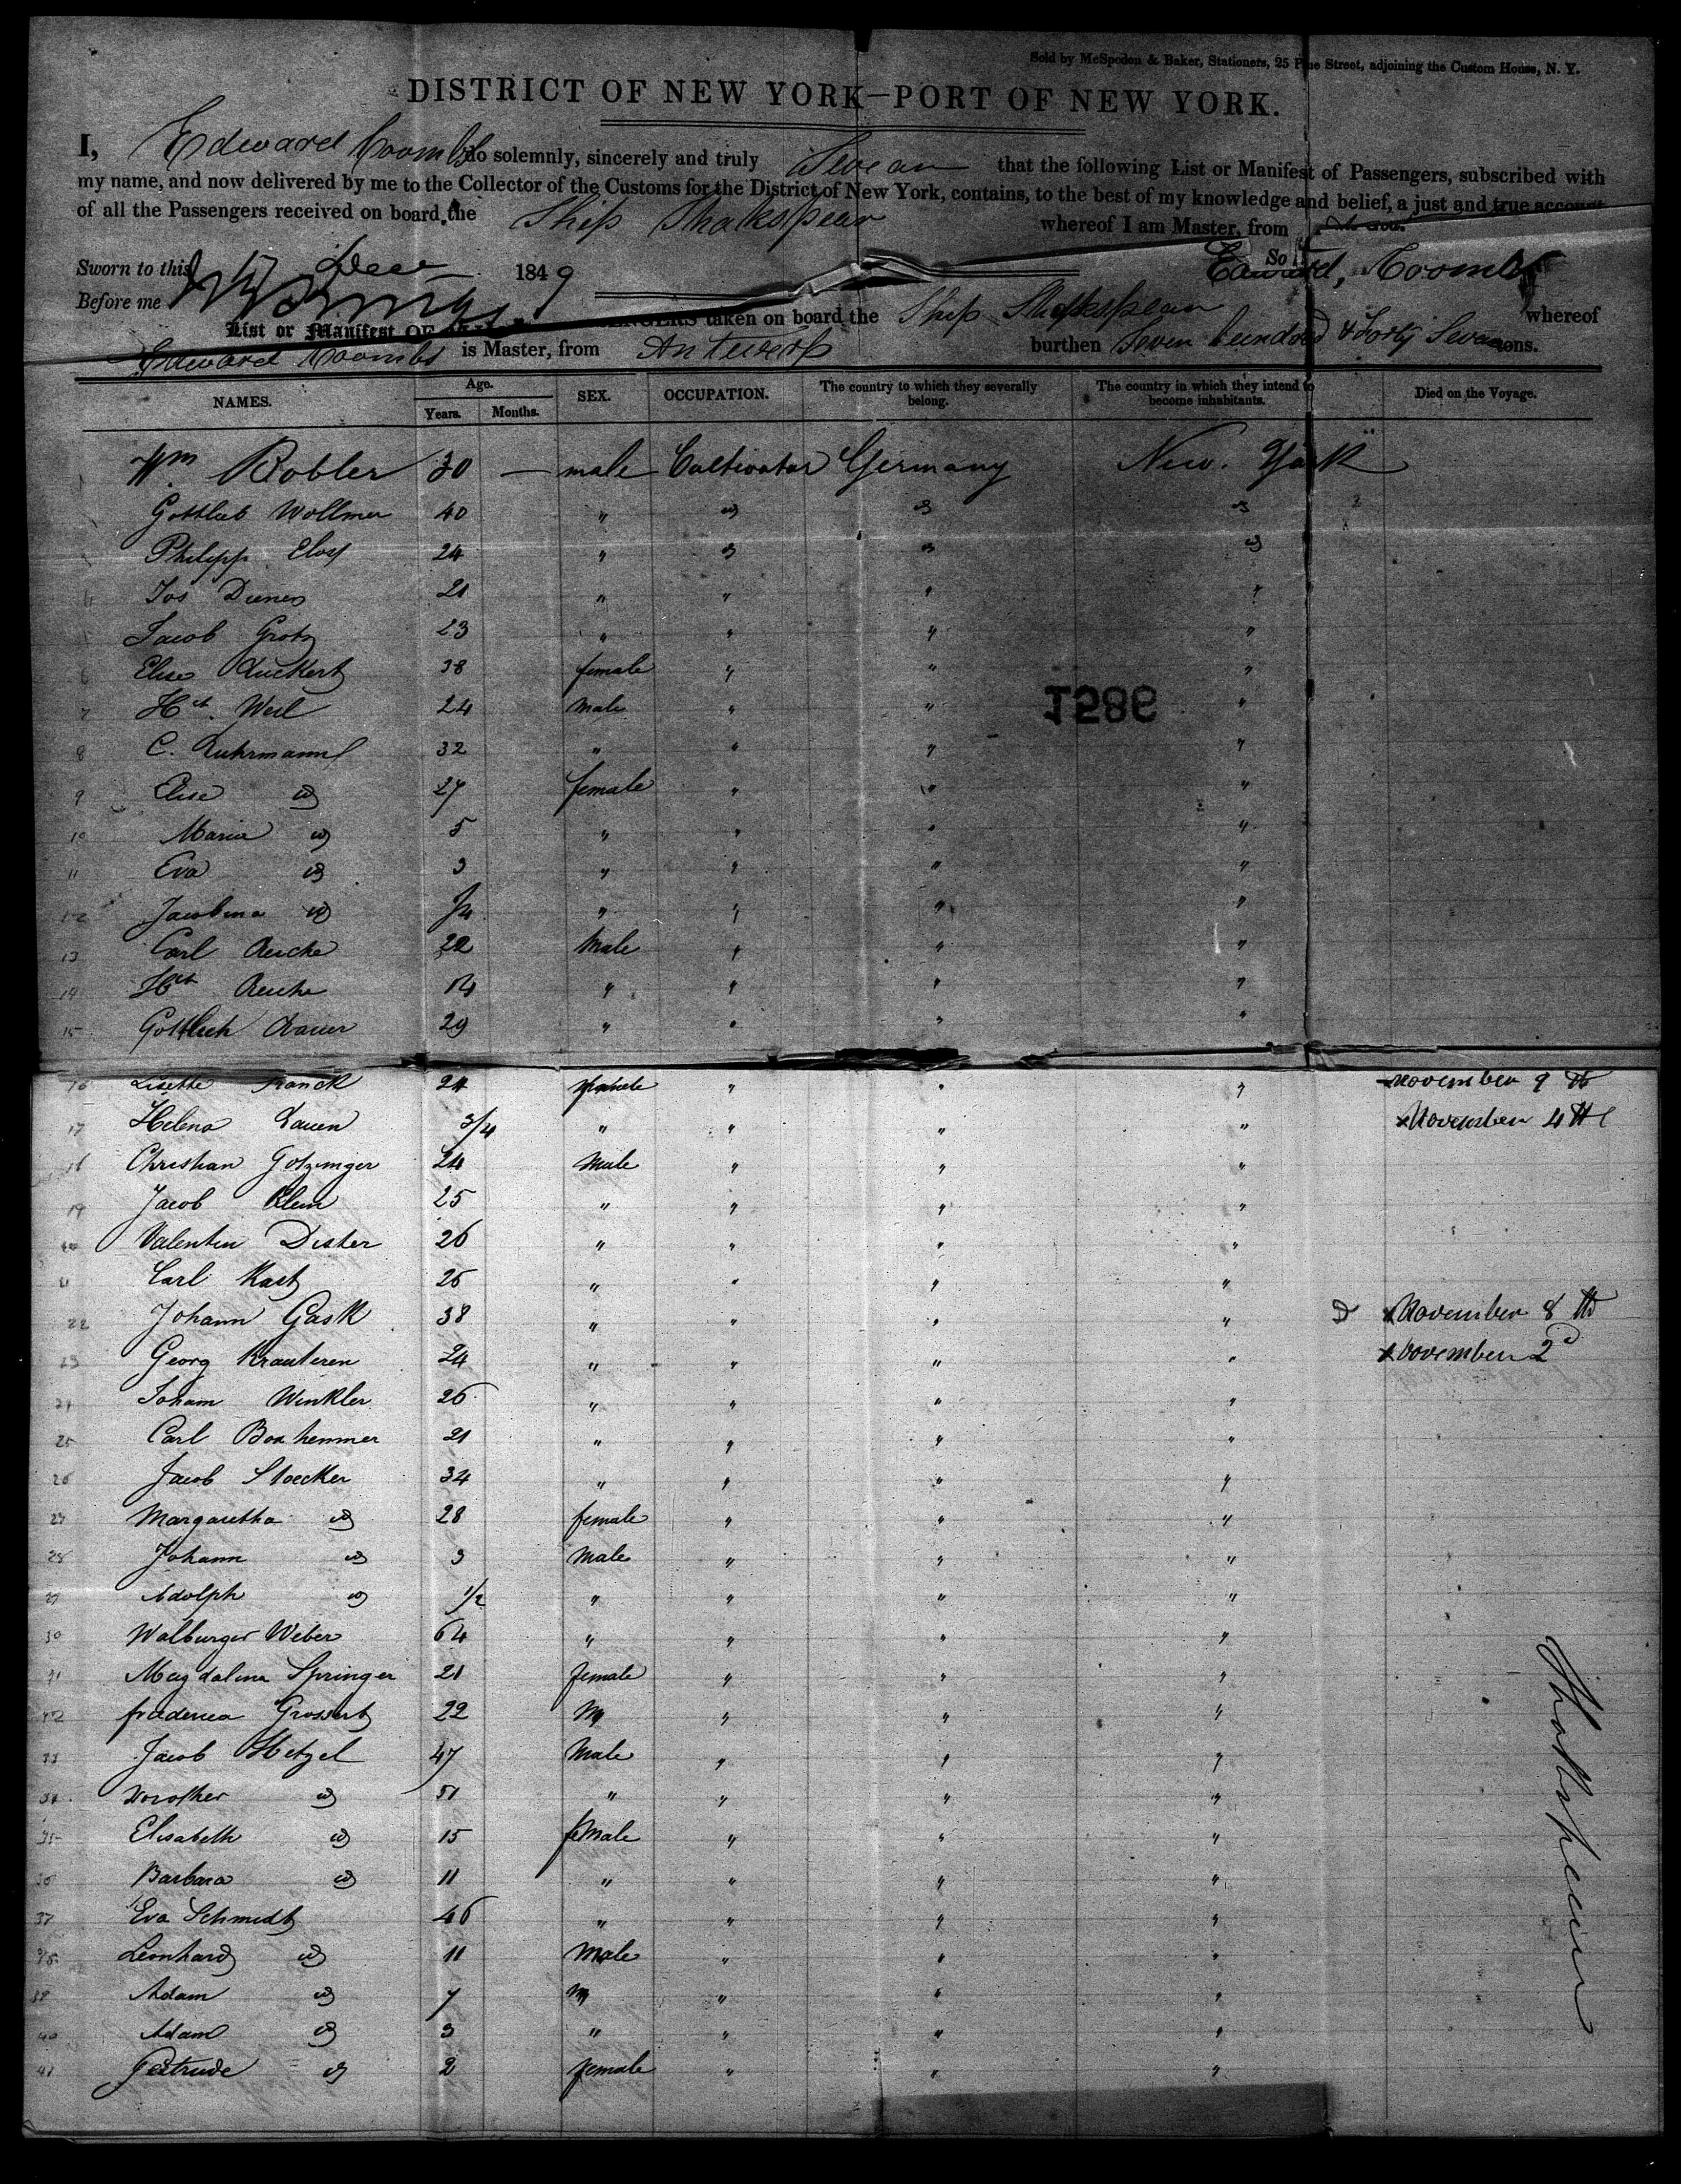 Sold by McSpedon & Baker, Stationers, 25 Pine Street, adjoining the Custom House, N. Y.
DISTRICT OF NEW YORK—PORT OF NEW YORK.
I, Edward Coombs do solemnly, sincerely and truly Swear that the following List or Manifest of Passengers, subscribed with
my name, and now delivered by me to the Collector of the Customs for the District of New York, contains, to the best of my knowledge and belief, a just and true account
of all the Passengers received on board the Ship Shakspear whereof I am Master, from
Sworn to this Dec 1849 So Edward Coombs
Before me
List or Manifest OF taken on board the Ship Shakspear whereof
Edward Coombs is Master, from Antwerp burthen Seven hundred & Forty Seven tons.
NAMES. Age. Years. Months. SEX. OCCUPATION. The country to which they severally belong. The country in which they intend to become inhabitants. Died on the Voyage.
Wm Bobler 30 — male Cultivator Germany New York
Gottlieb Wollmer 40 " do do do
Philipp 24 " do do do
Jos Dienes 21 " " " "
Jacob Grotz 23 " " " "
6 Elise Luckert 38 female " " "
7 Hch. Weil 24 male " " "
8 C. Luhrmann 32 " " " "
9 Elise do 27 female " " "
10 Maria do 5 " " " "
11 Eva do 3 " " " "
12 Jacobina do " " " "
13 Carl Reiche 22 Male " " "
14 Hch Reiche 14 " " " "
15 Gottlieb Lauer 29 " " " "
16 Lisette Franck 24 female " " " November 9th
17 Helena Lauer 3/4 " " " " November 4th
18 Christian Gotzinger 24 Male " " "
19 Jacob Klein 25 " " " "
20 Valentin Dister 26 " " " "
21 Carl Kast 25 " " " "
22 Johann Gask 38 " " " " D November 8th
23 Georg Krauteren 24 " " " " November 2d
24 Johann Winkler 26 " " " "
25 Carl Boxhemmer 21 " " " "
26 Jacob Stoecker 34 " " " "
27 Margaretha do 28 female " " "
28 Johann do 3 Male " " "
29 Adolph do 1/2 " " " "
30 Walburger Weber 64 " " " "
31 Magdalena Springer 21 female " " "
32 frederica Grossart 22 " " "
33 Jacob Hetzel 47 Male " " "
34 Dorother do 51 " " " "
35 Elisabeth do 15 feMale " " "
36 Barbara do 11 " " " "
37 Eva Schmidt 46 " " " "
38 Leonhard do 11 Male " " "
39 Adam do 7 " " "
40 Adam do 3 " " " "
41 Gertrude do 2 female " " "
1586
Shakspear